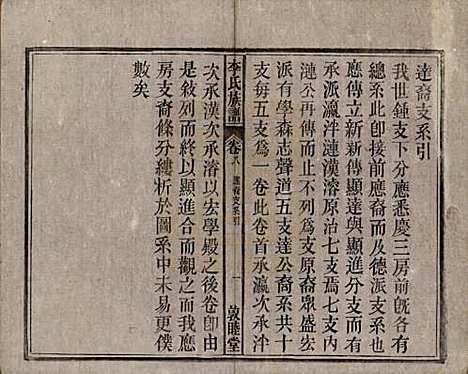 達裔支系引
我世鍾支下分應悉慶三房前旣各有
總系此卽接前應裔而及德派支系也
應傳立新新傳顯達與顯分支而有
承派瀛泮漣漢濬原治七支焉七支內
漣公再傳而止不列爲支原裔衆盛宏
派有學森志聲道五支達公裔系共十
支每五支爲一卷此卷首承瀛次承泮
次承漢次承濬以宏學殿之後卷卽由
是敘列而終以顯進合而觀之而我應
房支裔餘分縷析於圖系中未易更僕
數矣
李氏族譜
卷八 達裔支系引
一
敦睦堂